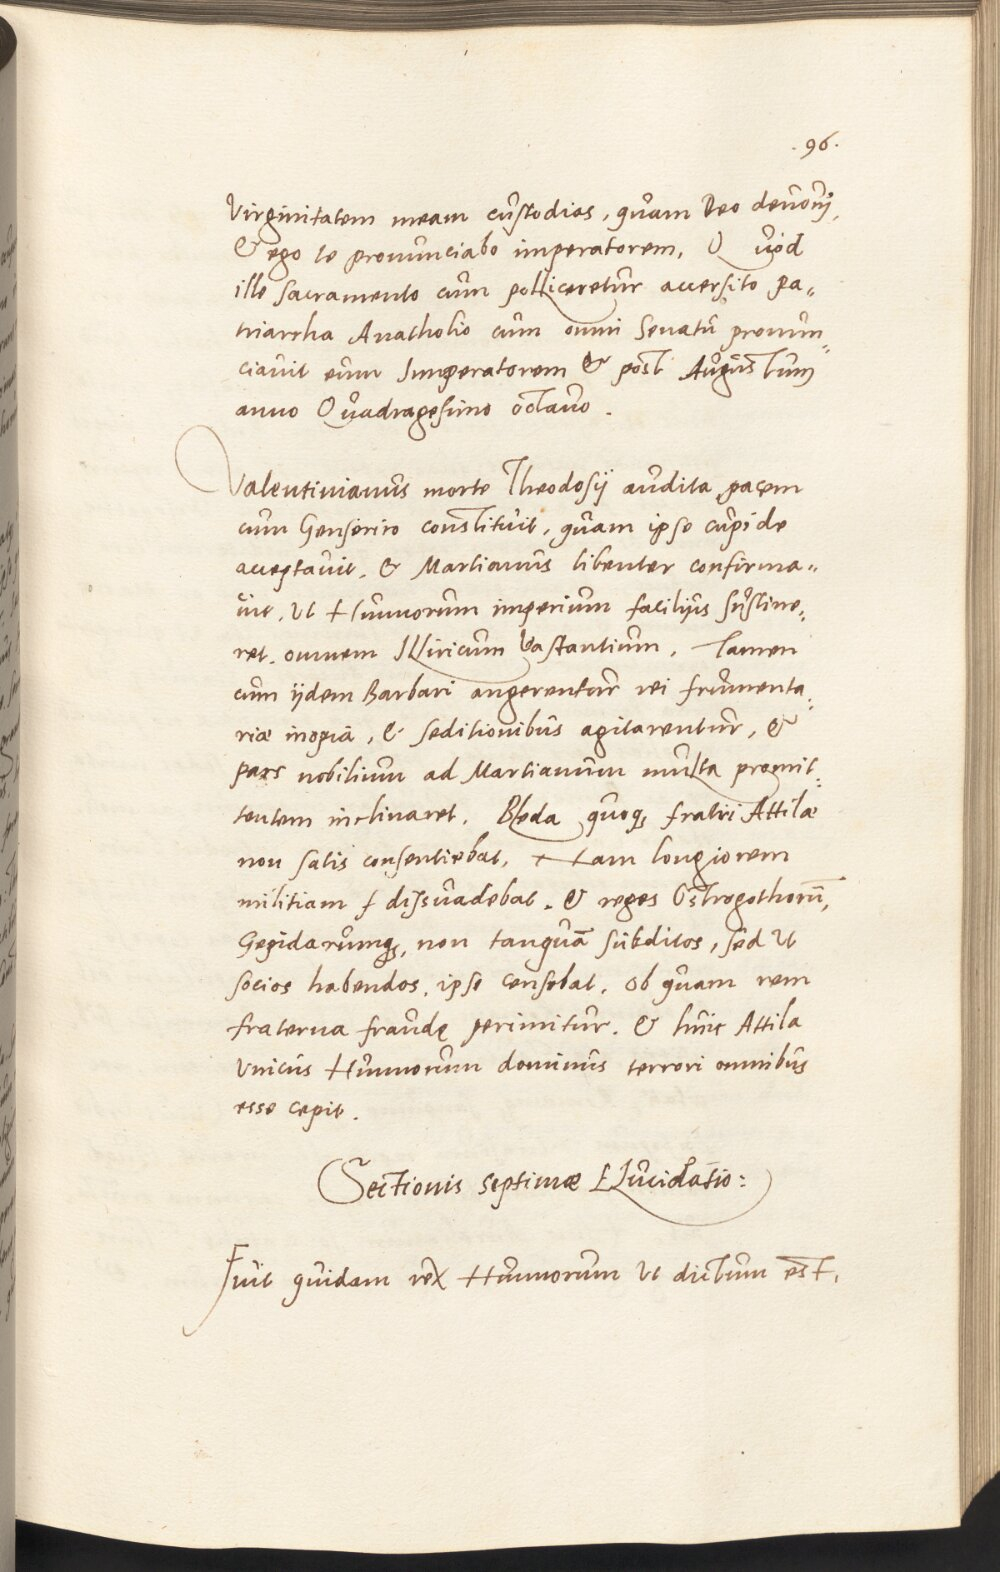 . 96 .
Virginitatem meam custodias, quam Deo devovi,
& ego te pronunciabo imperatorem. Quod
ille sacramento cum polliceretur accersito pa„
triarcha Anatholio cum omni senatu pronun„
ciavit eum Imperatorem & post Augustum
anno Quadragesimo octavo .
Valentinianus morte Theodosij audita pacem
cum Genserico constituit, quam ipse cupide
acceptavit. & Martianus libenter confirma„
vit. Ut Hunnorum imperium facilius sustine„
ret. omnem Illiricum Vastantium. Tamen
cum ijdem Barbari angerentur rei frumenta„
riæ inopia, & seditionibus agitarentur, &
pars nobilium ad Martianum multa promit„
tentem inclinaret. Bleda quoq fratri Attilæ
non satis consentiebat. Nam longiorem
militiam dissuadebat. & reges Ostrogothorū,
Gepidarumq, non tanquā subditos, sed Ut
socios habendos. ipse censebat. ob quam rem
fraterna fraude perimitur. & hinc Attila
Unicus Hunnorum dominus terrori omnibus
esse cepit .
Sectionis septimæ Elucidatio:
Fuit quidam rex Hunnorum Ut dictum est,